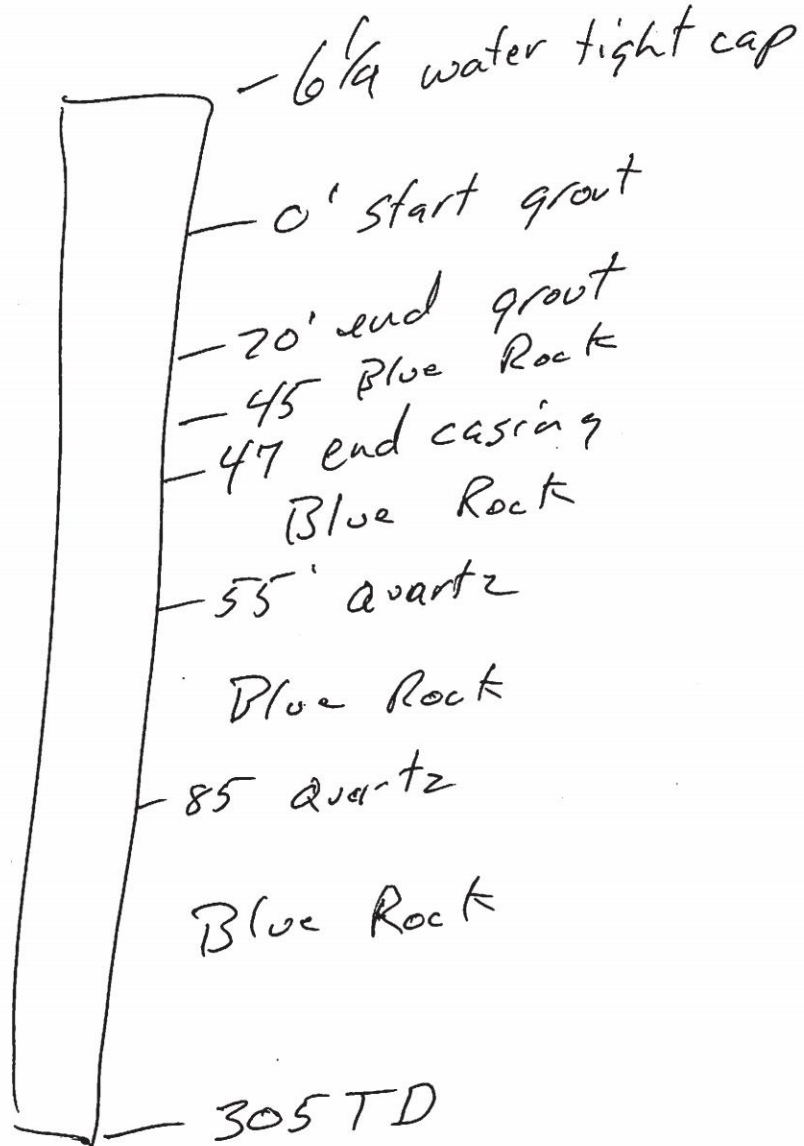 6 1/4 water tight cap
0' start grout
20' end grout
45 Blue Rock
47 end casing
Blue Rock
55' Quartz
Blue Rock
85 Quartz
Blue Rock
305 TD